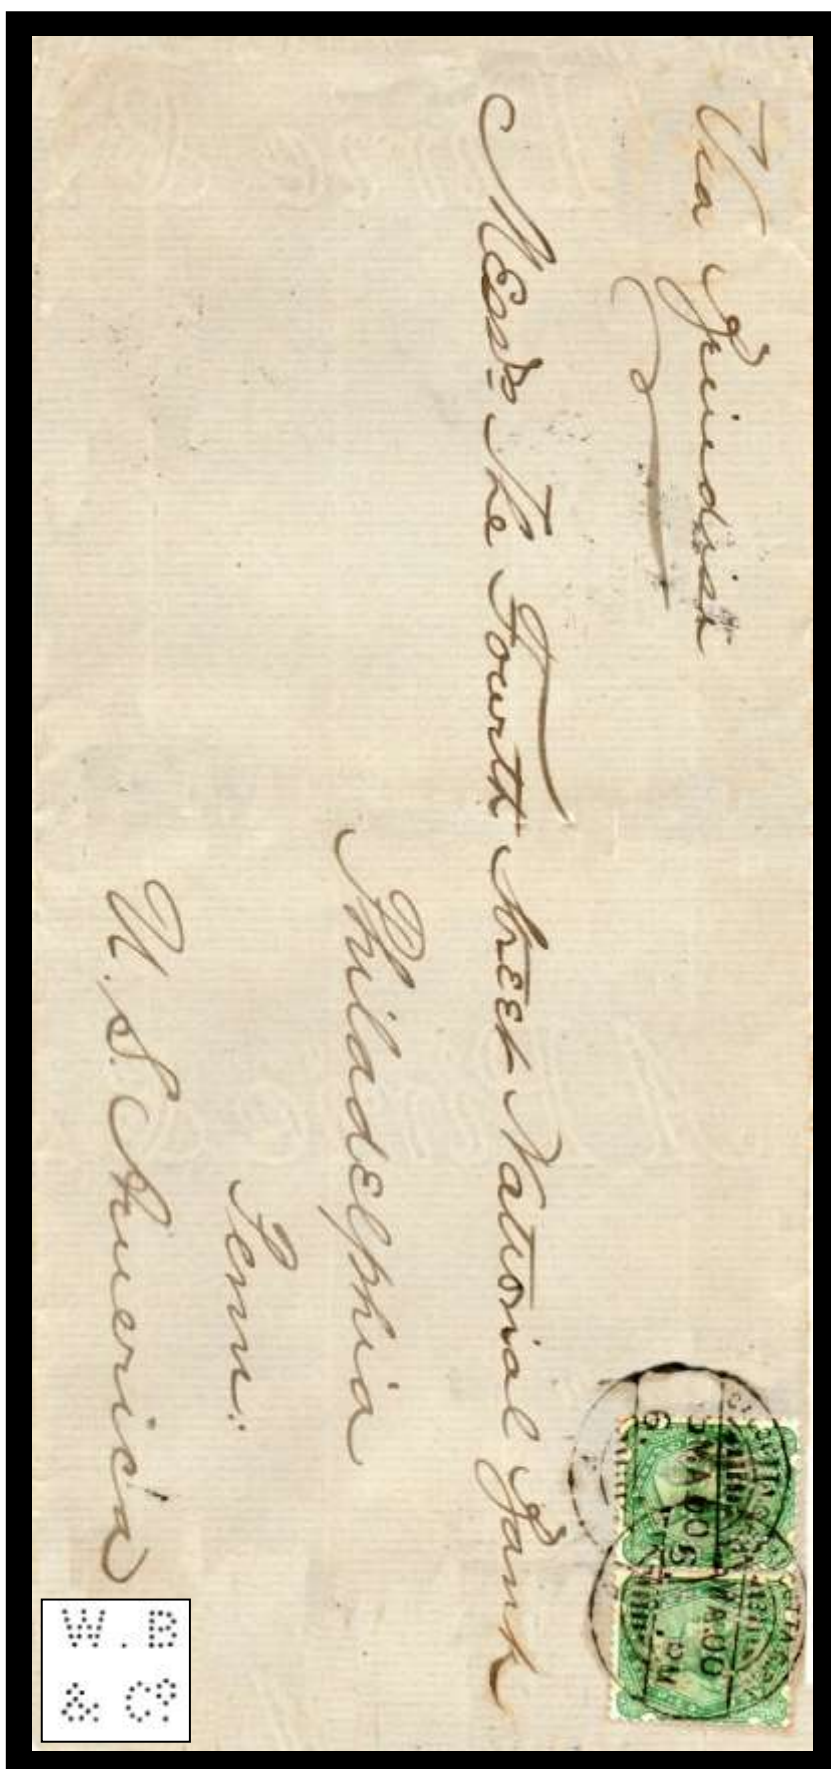 Via Brindisi
Messrs The Fourth Street National Bank
Philadelphia
Penn:
U.S. America
5 MA 00
6.
MA 00
PM
W. B
& Co